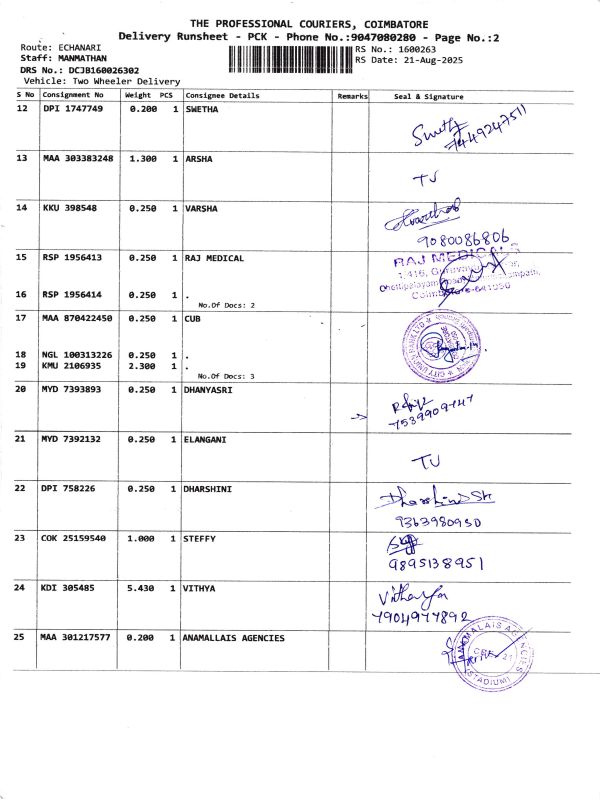 THE PROFESSIONAL COURIERS, COIMBATORE
Delivery Runsheet - PCK - Phone No.:9047080280 - Page No.:2
Route: ECHANARI RS No.: 1600263
Staff: MANMATHAN RS Date: 21-Aug-2025
DRS No.: DCJB160026302
Vehicle: Two Wheeler Delivery
S No Consignment No Weight PCS Consignee Details Remarks Seal & Signature
12 DPI 1747749 0.200 1 SWETHA
Swetha
7449247511
13 MAA 303383248 1.300 1 ARSHA
TU
14 KKU 398548 0.250 1 VARSHA
9080086806
15 RSP 1956413 0.250 1 RAJ MEDICAL
RAJ MEDICALS
1,416,
Chettipalayam
Coimbatore-641
16 RSP 1956414 0.250 1 .
No.Of Docs: 2
17 MAA 870422450 0.250 1 CUB
CITY UNION BANK LTD
18 NGL 100313226 0.250 1 .
19 KMU 2106935 2.300 1 .
No.Of Docs: 3
20 MYD 7393893 0.250 1 DHANYASRI
7539909747
21 MYD 7392132 0.250 1 ELANGANI
TU
22 DPI 758226 0.250 1 DHARSHINI
Dharshini
9363980930
23 COK 25159540 1.000 1 STEFFY
9895138951
24 KDI 305485 5.430 1 VITHYA
7904977892
25 MAA 301217577 0.200 1 ANAMALLAIS AGENCIES
ANAMALAIS AGENCIES
CBE - 21
(STADIUM)